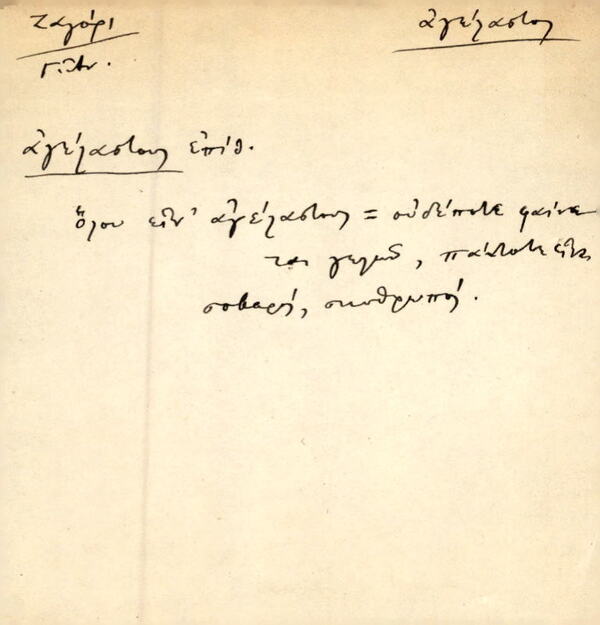 Ζαγόρι
ἀγέλαστος
ἀγέλαστους ἐπίθ.
ὅλου εἶν' ἀγέλαστους = οὐδέποτε φαίνε
ται γελῶν, πάντοτε εἶναι
σοβαρός, σκυθρωπός.